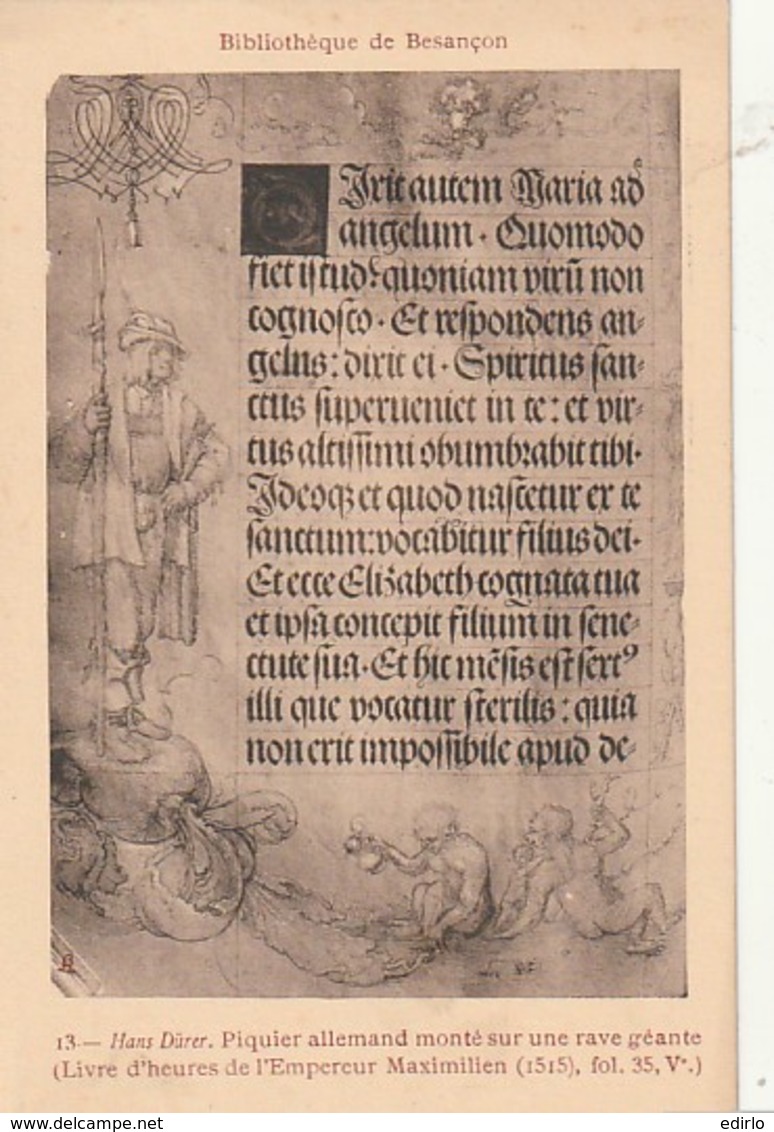 Bibliothèque de Besançon
Dixit autem Maria ad
angelum · Quomodo
fiet istud? quoniam virū non
cognosco · Et respondens an=
gelus: dixit ei · Spiritus san=
ctus superueniet in te: et vir=
tus altissimi obumbrabit tibi·
Ideoqꝫ et quod nascetur ex te
sanctum: vocabitur filius dei·
Et ecce Elizabeth cognata tua
et ipsa concepit filium in sene=
ctute sua · Et hic mēsis est sextꝰ
illi que vocatur sterilis: quia
non erit impossibile apud de=
13.— Hans Dürer. Piquier allemand monté sur une rave géante
(Livre d'heures de l'Empereur Maximilien (1515), fol. 35, Vº.)
delcampe.net
edirlo